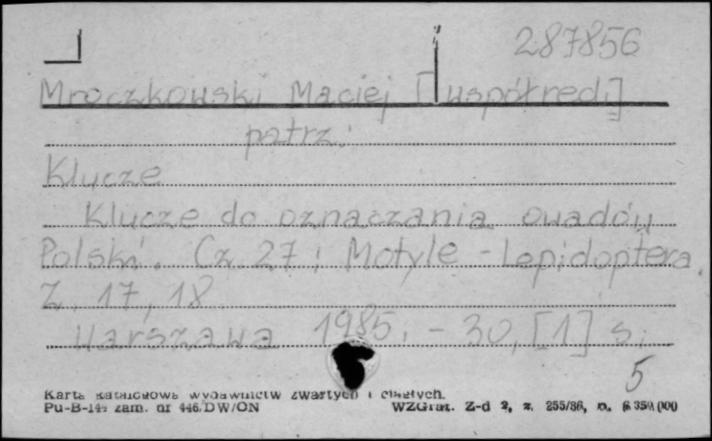 287856
Mroczkowski Maciej [współred.]
patrz:
Klucze
Klucze do oznaczania owadów
Polski. Cz. 27: Motyle - Lepidoptera.
Z. 17, 18
Warszawa 1985. - 30, [1] s.
5
Karta katalogowa wydawnictw zwartych i ciągłych.
Pu-B-144 zam. nr 446/DW/ON WZGraf. Z-d 2, z. 255/86, n.